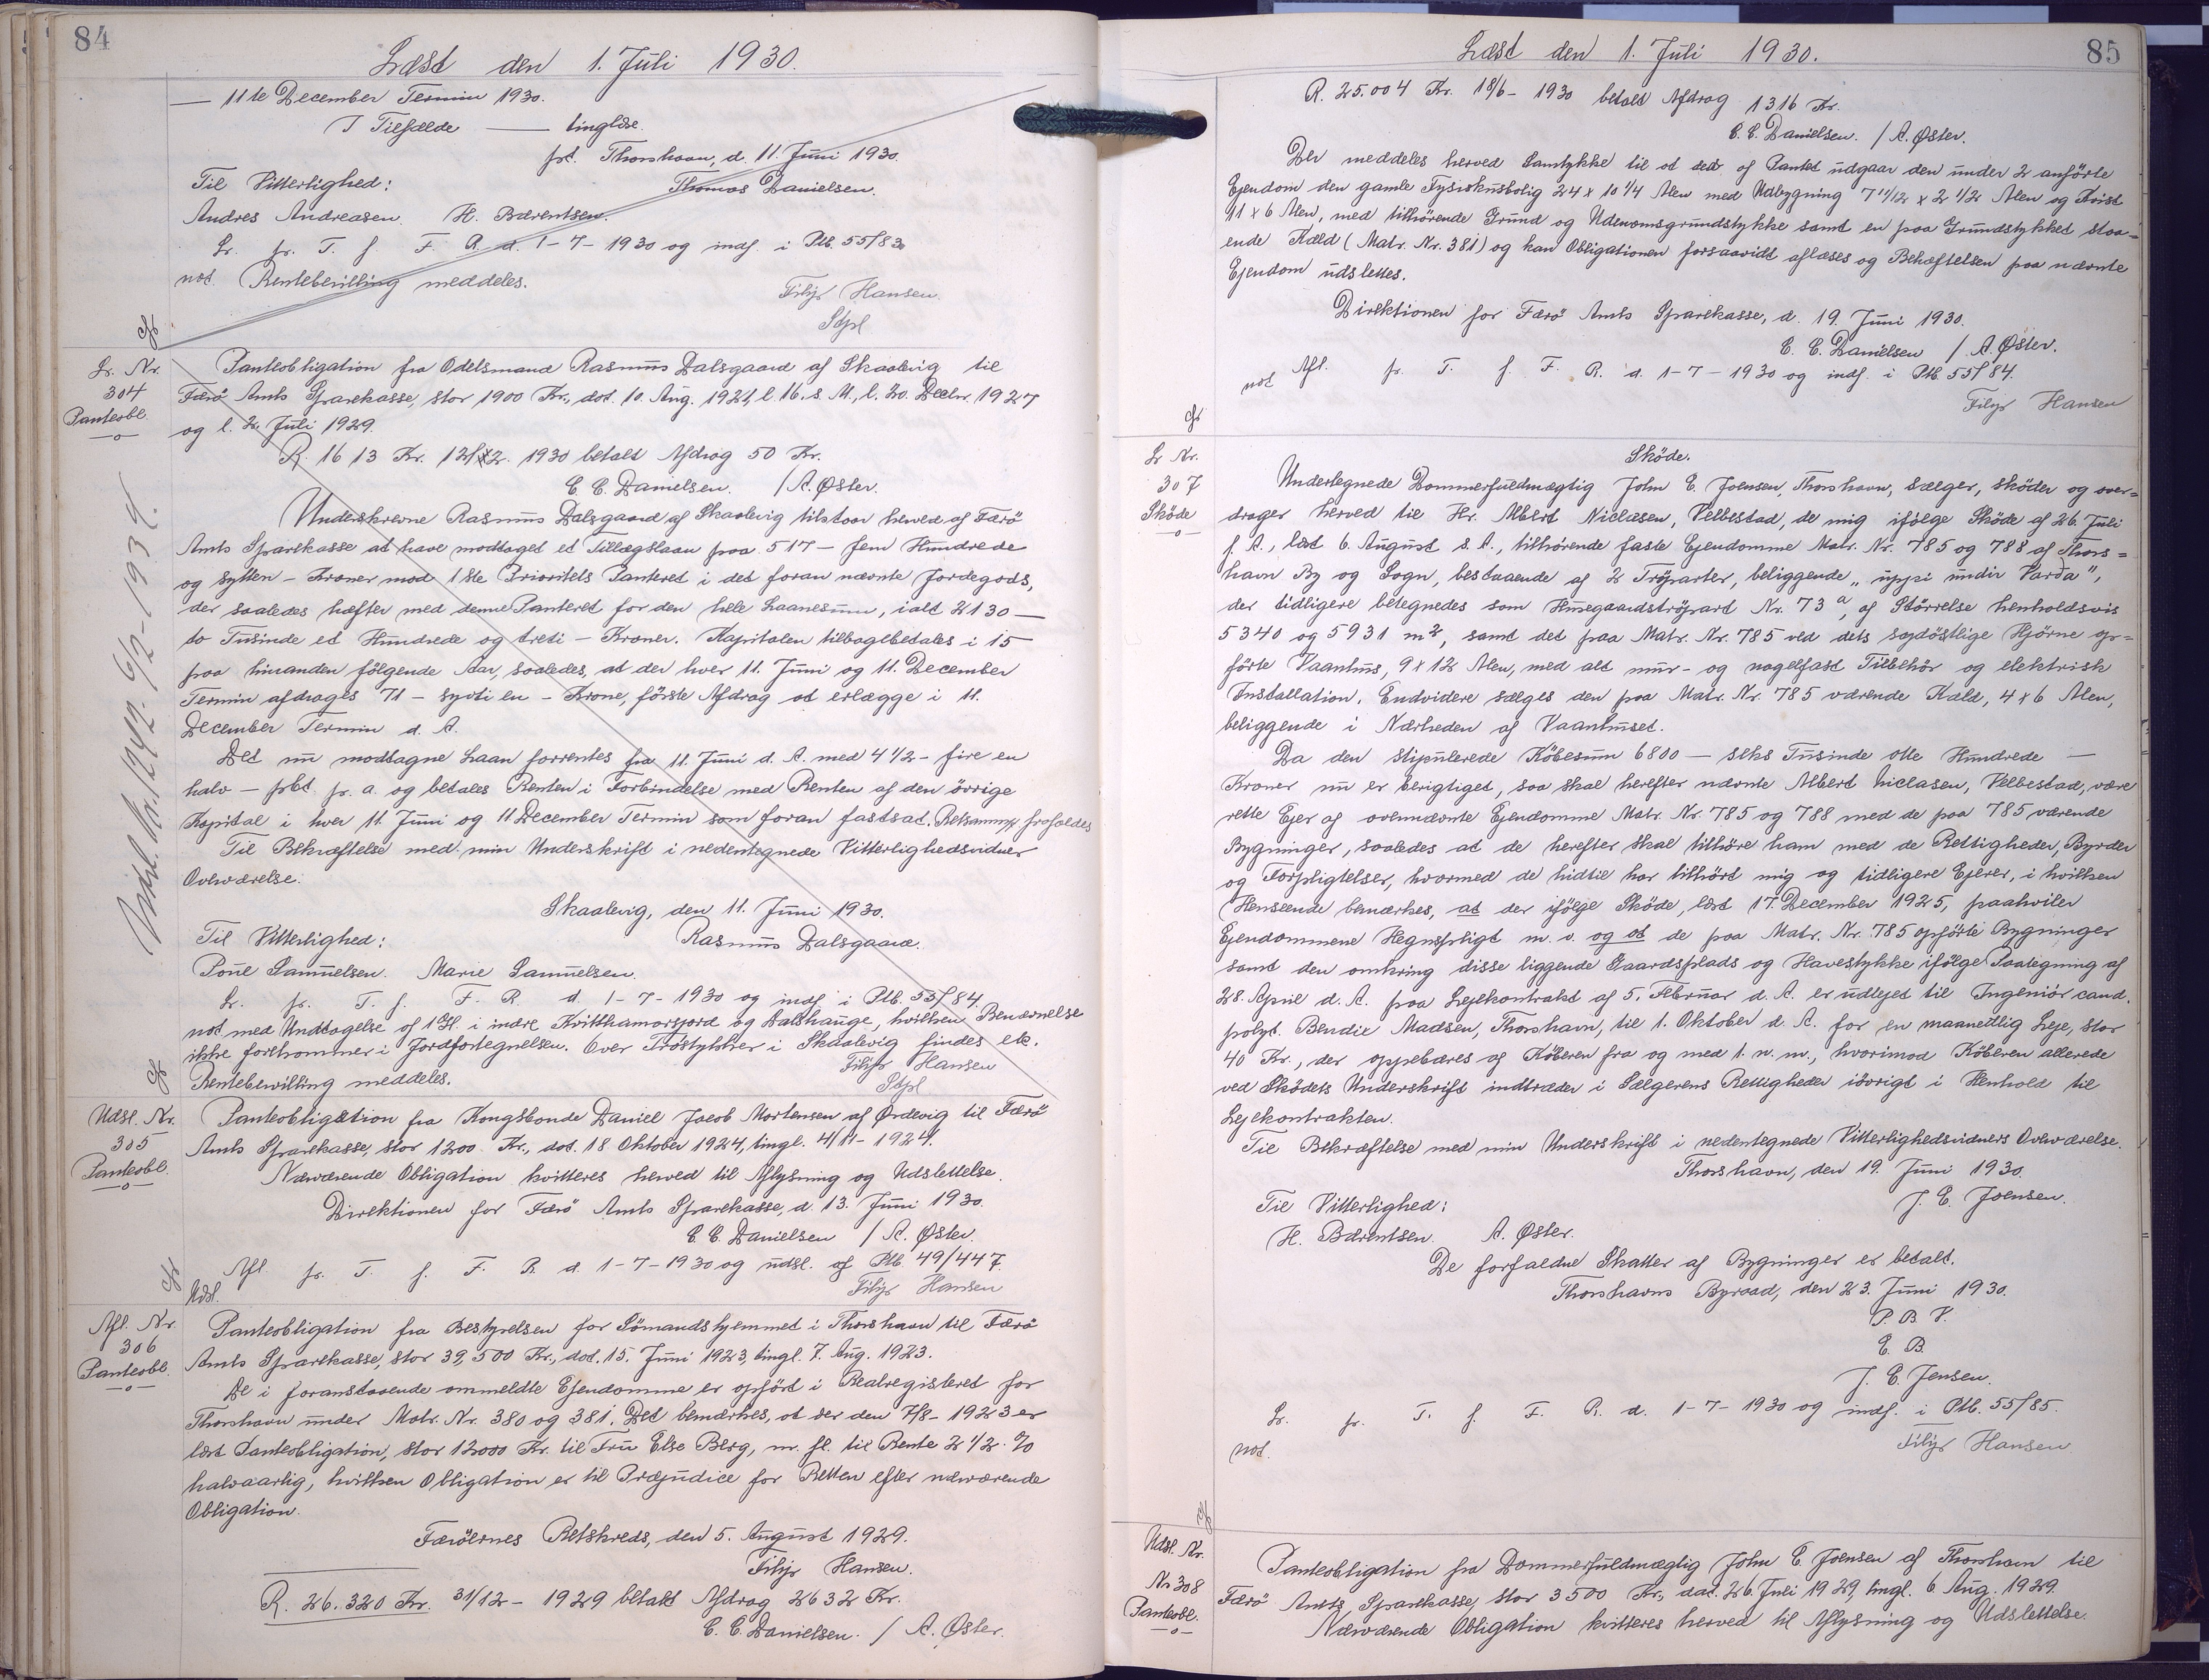 84
Læst den 1. Juli 1930.
— 11te December Termin 1930.
I Tilfælde — tinglæse.
pt. Thorshavn, d. 11. Juni 1930.
Til Vitterlighed: Thomas Danielsen.
Andres Andreasen. H. Bærentsen.
Lr. fr. T. f. F. R. d. 1-7-1930 og indf. i Ptb. 55/83
not. Rentebevilling meddeles.
Filip Hansen.
Stpl
Lr. Nr.
304
Panteobl.
Panteobligation fra Odelsmand Rasmus Dalsgaard af Skaalevig til
Færö Amts Sparekasse, stor 1900 Kr., dat. 10. Aug. 1921, l. 16. s. M., l. 20. Decbr. 1927
og l. 2. Juli 1929.
R. 1613 Kr. 12/2. 1930 betalt Afdrag 50 Kr.
C. C. Danielsen. / A. Øster.
Underskrevne Rasmus Dalsgaard af Skaalevig tilstaar herved af Færö
Amts Sparekasse at have modtaget et Tillægslaan paa 517 — fem Hundrede
og sytten — Kroner mod 1ste Prioritets Panteret i det foran nævnte Jordegods,
der saaledes hæfter med denne Panteret for den hele Laanesum, ialt 2130 —
to Tusinde et Hundrede og treti — Kroner. Kapitalen tilbagebetales i 15
paa hinanden fölgende Aar, saaledes, at der hver 11. Juni og 11. December
Termin afdrages 71 — syvti en — Krone, förste Afdrag at erlægge i 11.
December Termin d. A.
Det nu modtagne Laan forrentes fra 11. Juni d. A. med 4 1/2 — fire en
halv — pCt. p. a. og betales Renten i Forbindelse med Renten af den övrige
Kapital i hver 11. Juni og 11 December Termin som foran fastsat.
Til Bekræftelse med min Underskrift i nedentegnede Vitterlighedsvidners
Overværelse.
Skaalevig, den 11. Juni 1930.
Til Vitterlighed: Rasmus Dalsgaard.
Poul Samuelsen. Marie Samuelsen.
Lr. fr. T. f. F. R. d. 1-7-1930 og indf. i Ptb. 55/84.
not med Undtagelse af 1 Gl. i indre Kvitthamarsjord og Dalshauge, hvilken Benævnelse
ikke forekommer i Jordfortegnelsen. Over Tröstykker i Skaalevig findes ek.
Rentebevilling meddeles. Filip Hansen
Stpl
Udsl. Nr. 1242. 6/2-1939.
Udsl. Nr.
305
Panteobl.
Panteobligation fra Kongsbonde Daniel Jacob Mortensen af Ørdevig til Færö
Amts Sparekasse, stor 1200 Kr., dat. 18 Oktober 1924, tingl. 4/11-1924.
Nærværende Obligation kvitteres herved til Aflysning og Udslettelse.
Direktionen for Færö Amts Sparekasse, d. 13. Juni 1930.
C. C. Danielsen / A. Øster.
Afl. fr. T. f. F. R. d. 1-7-1930 og udsl. af Ptb 49/447.
Udsl. Filip Hansen
Afl. Nr.
306
Panteobl.
Panteobligation fra Bestyrelsen for Sömandshjemmet i Thorshavn til Færö
Amts Sparekasse, stor 39,500 Kr., dat. 15. Juni 1923, tingl. 7. Aug. 1923.
De i foranstaaende ommeldte Ejendomme er opfört i Realregisteret for
Thorshavn under Matr. Nr. 380 og 381. Det bemærkes, at der den 7/8-1923 er
læst Panteobligation, stor 12000 Kr. til Fru Else Berg, m. fl. til Rente 2 1/2 %
halvaarlig, hvilken Obligation er til Præjudice for Retten efter nærværende
Obligation.
Færöernes Retskreds, den 5. August 1929.
Filip Hansen.
R. 26.320 Kr. 31/12-1929 betalt Afdrag 2632 Kr.
C. C. Danielsen. / A. Øster.
85
Læst den 1. Juli 1930.
R. 25.004 Kr. 18/6-1930 betalt Afdrag 1316 Kr.
C. C. Danielsen. / A. Øster.
Der meddeles herved Samtykke til at der af Pantet udgaar den under 2 anförte
Ejendom den gamle Fysikusbolig 24 x 10 1/4 Alen med Udbygning 7 11/12 x 2 1/2 Alen og Kvist
11 x 6 Alen, med tilhörende Grund og Udenomsgrundstykke samt en paa Grundstykket staa=
ende Kæld (Matr. Nr. 381) og kan Obligationen forsaavidt aflæses og Behæftelsen paa nævnte
Ejendom udslettes.
Direktionen for Færö Amts Sparekasse, d. 19. Juni 1930.
C. C. Danielsen / A. Øster.
not Afl. fr. T. f. F. R. d. 1-7-1930 og indf. i Ptb. 55/84.
Filip Hansen
Lr Nr.
307
Sköde
Sköde.
Undertegnede Dommerfuldmægtig John C. Joensen, Thorshavn, sælger, sköder og over=
drager herved til Hr. Albert Niclasen, Velbestad, de mig ifölge Sköde af 26. Juli
f. A., læst 6. August s. A., tilhörende faste Ejendomme Matr. Nr. 785 og 788 af Thors=
havn By og Sogn, bestaaende af 2 Tröparter, beliggende „uppi undir Varða",
der tidligere betegnedes som Husegaardströpart Nr. 73a, af Störrelse henholdsvis
5340 og 5931 m2, samt det paa Matr. Nr. 785 ved dets sydöstlige Hjörne op=
förte Vaanhus, 9 x 12 Alen, med alt mur- og nagelfast Tilbehör og elektrisk
Installation. Endvidere sælges den paa Matr. Nr. 785 værende Kæld, 4 x 6 Alen,
beliggende i Nærheden af Vaanhuset.
Da den stipulerede Köbesum 6800 — seks Tusinde otte Hundrede —
Kroner nu er berigtiget, saa skal herefter nævnte Albert Niclasen, Velbestad, være
rette Ejer af ovennævnte Ejendomme Matr. Nr. 785 og 788 med de paa 785 værende
Bygninger, saaledes at de herefter skal tilhöre ham med de Rettigheder, Byrder
og Forpligtelser, hvormed de hidtil har tilhört mig og tidligere Ejerer, i hvilken
Henseende bemærkes, at der ifölge Sköde, læst 17. December 1925, paahviler
Ejendommene Hegnspligt m. v. og at de paa Matr. Nr. 785 opförte Bygninger
samt den omkring disse liggende Gaardsplads og Havestykke ifölge Paategning af
28. April d. A. paa Lejekontrakt af 5. Februar d. A. er udlejet til Ingeniör cand.
polyt. Bendix Madsen, Thorshavn, til 1. Oktober d. A. for en maanedlig Leje, stor
40 Kr., der oppebæres af Köberen fra og med 1. n. m., hvorimod Köberen allerede
ved Sködets Underskrift indtræder i Sælgerens Rettigheder iövrigt i Henhold til
Lejekontrakten.
Til Bekræftelse med min Underskrift i nedentegnede Vitterlighedsvidners Overværelse.
Thorshavn, den 19. Juni 1930.
Til Vitterlighed: J. C. Joensen.
H. Bærentsen. A. Øster.
De forfaldne Skatter af Bygninger er betalt.
Thorshavns Byraad, den 23. Juni 1930.
P. B. V.
E. B.
J. C. Jensen.
Lr. fr. T. f. F. R. d. 1-7-1930 og indf. i Ptb. 55/85.
not. Filip Hansen.
Udsl. Nr.
Nr 308
Panteobl.
Panteobligation fra Dommerfuldmægtig John C. Joensen af Thorshavn til
Færö Amts Sparekasse, stor 3500 Kr., dat. 26. Juli 1929, tingl. 6. Aug. 1929.
Nærværende Obligation kvitteres herved til Aflysning og Udslettelse.